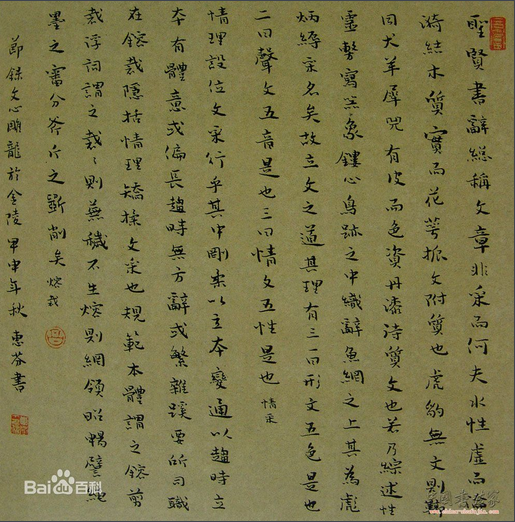 聖賢書辭總稱文章非采而何夫水性虛而淪
漪結木質實而花萼振文附質也虎豹無文則鞟
同犬羊犀兕有皮而色資丹漆待質文也若乃綜述性
靈敷寫器象鏤心鳥跡之中織辭魚網之上其為彪
炳縟采名矣故立文之道其理有三一曰形文五色是也
二曰聲文五音是也三曰情文五性是也 情采
情理設位文采行乎其中剛柔以立本變通以趨時立
本有體意或偏長趨時無方辭或繁雜蹊要所司職
在鎔裁隱括情理矯揉文采也規範本體謂之鎔剪
裁浮詞謂之裁〻則蕪穢不生熔則綱領昭暢譬繩
墨之審分斧斤之斲削矣 熔裁
節錄文心雕龍於金陵 甲申年秋 惠芬書
Bai 百科